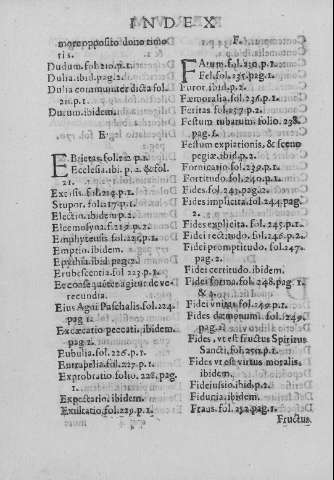 INDEX
more opposito dono timo
ris.
Dudum. fol. 210. p. 1.
Dulia. ibid. pag. 2.
Dulia communiter dicta fol.
211. p. 1.
Durum. ibidem.
E.
Ebrietas. fol. 212 p. 1.
Ecclesia. ibi. p. 2. & fol.
21.
Excessus. fol. 214. p. 1.
Stupor. folio. 217. p. 1.
Electio. ibidem p. 2.
Eleemosyna. f. 219. p. 2.
Emphyteusis. fol. 221. p. 1.
Emptio. ibidem.
Epythia. ibid. pag. 2.
Erubescentia. fol. 223. p. 1.
Ee consequenter agitur de ve-
recundia.
Eius Agni Paschalis. fol. 224.
pag. 1.
Excæcatio peccati. ibidem.
pag. 2.
Eubulia. fol. 226. p. 1.
Eutrapelia. fol. 227. p. 1.
Exprobratio folio. 228. pag.
1.
Expectatio. ibidem.
Exultatio. fol. 229. p. 1.
F.
Fatum. fol. 230. p. 1.
Fel. fol. 235. pag. 1.
Furor. ibid. p. 2.
Fæmoralia. fol. 236. p. 1.
Feritas. fol. 237. p. 2.
Festum tubarum. folio. 238.
pag. 1.
Festum expiationis, & sceno
pegiæ. ibid. p. 2.
Fornicatio. fol. 239. p. 1.
Fortitudo. fol. 240. p. 1.
Fides. fol. 243. pag. 2.
Fides implicita. fol. 244. pag.
2.
Fides explicita. fol. 245. p. 1.
Fidei rectitudo. fol. 246. p. 2.
Fidei promptitudo. fol. 247.
pag. 2.
Fidei certitudo. ibidem.
Fidei forma. fol. 248. pag. 1.
& 2.
Fidei unitas. fol. 249. p. 1.
Fides dæmonum. fol. 249.
pag. 2.
Fides, vt est fructus Spiritus
Sancti. fol. 250. p. 1.
Fides vt est virtus moralis.
ibidem.
Fideiussio. ibid. p. 2.
Fiducia. ibidem.
Fraus. fol. 252. pag. 1.
Fructus.